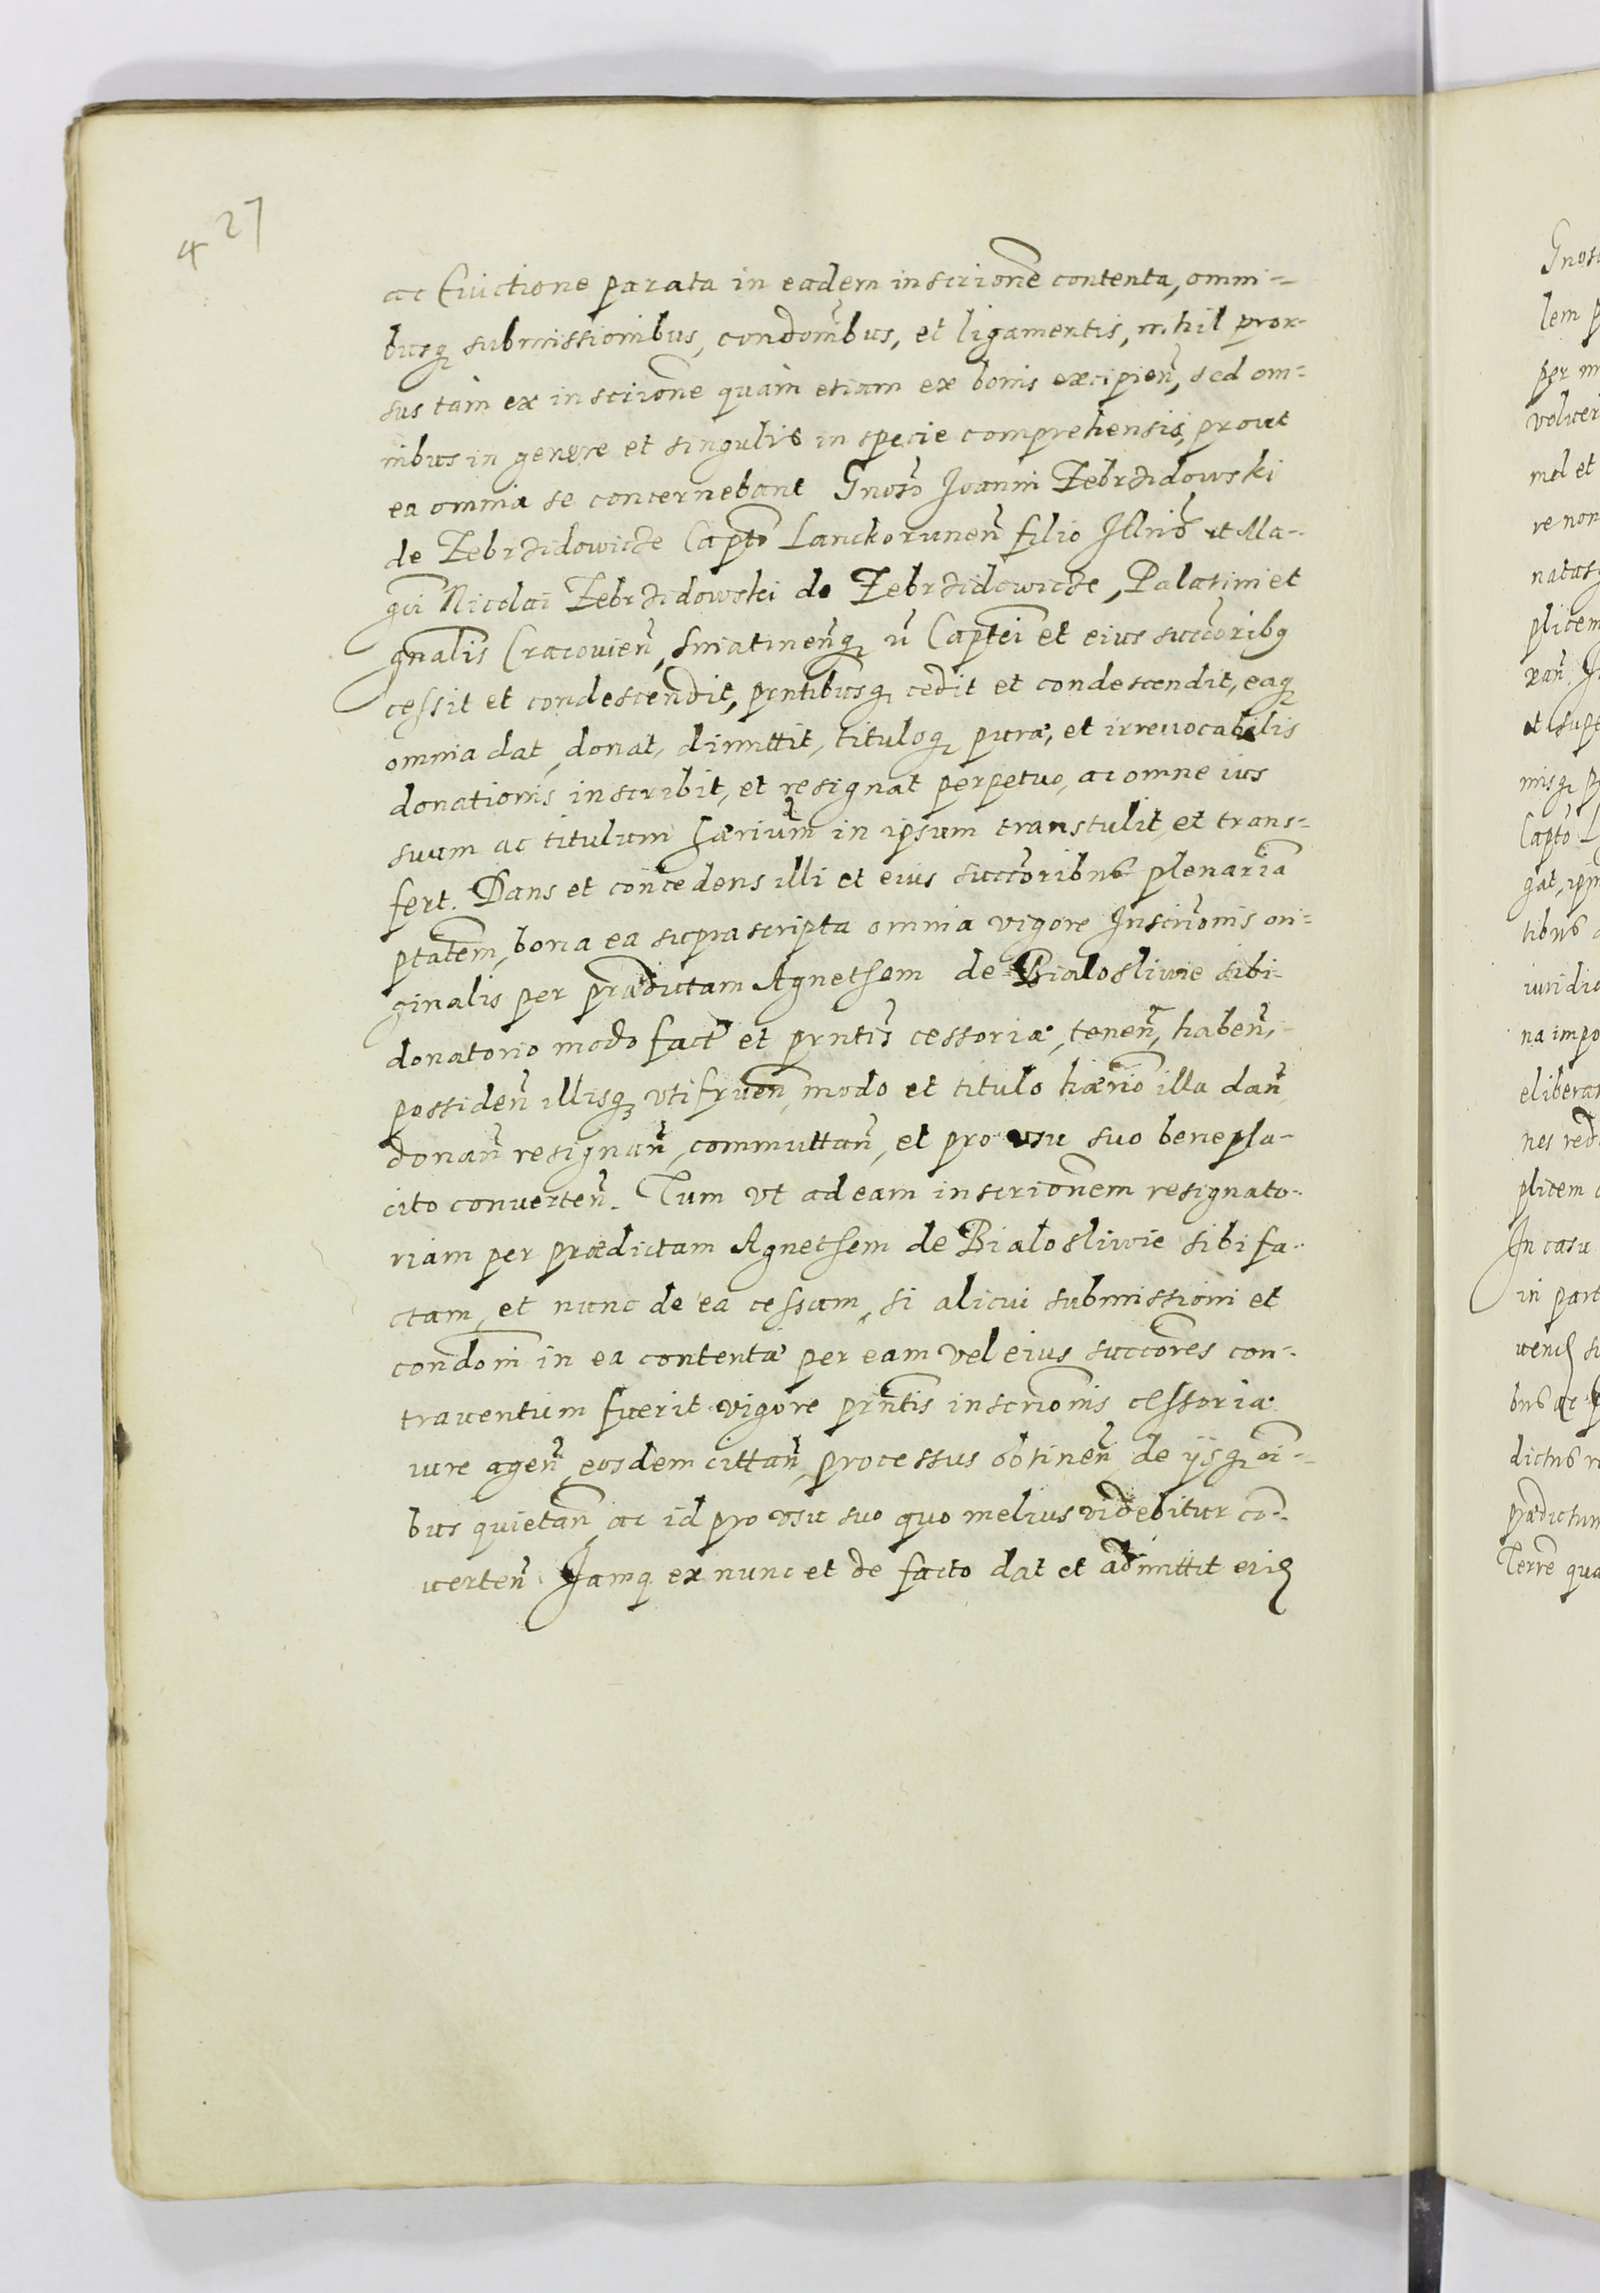 4 27
ac Euictione parata in eadem inscrione contenta, omni-
busq submissionibus, condonibus, et ligamentis, nihil pror-
sus tam ex inscrione quam etiam ex bonis excipien, sed om-
nibus in genere et singulis in specie comprehensis, prout
ea omnia se concernebant Gnoso Joanni Zebrzidowski
de Zebrzidowicze Capto Lanckorunen filio Illris et Ma-
gci Nicolai Zebrzidowski de Zebrzidowicze, Palatini et
gnalis Cracouien, Sniatinenq Captei et eius succoribq
cessit et condescendit, prntibusq cedit et condescendit, eaq
omnia dat, donat, dimittit, tituloq puræ, et irreuocabilis
donationis inscribit, et resignat perpetuo, ac omne ius
suum ac titulum hærium in ipsum transtulit, et trans-
fert. Dans et concedens illi et eius succoribus plenaria
ptatem, bona ea suprascripta omnia vigore Inscrionis ori-
ginalis per prædictam Agnethem de Bialosliwie sibi
donatorio modo fact et prntis cessoriæ, tenen, haben,
possiden illisq vtifruen, modo et titulo hærio illa dan
donan resignan, commuttan, et pro vsu suo benepla-
cito conuerten. Tum vt ad eam inscrionem resignato-
riam per prædictam Agnethem de Bialosliwie sibi fa-
ctam, et nunc de ea cessam, si alicui submissioni et
condoni in ea contentæ per eam vel eius succores con-
trauentum fuerit vigore prntis inscrionis cessoriæ
iure agen, eosdem cittan, processus obtinen, de ijsq oi-
bus quietan, ac id pro vsu suo quo melius videbitur co-
uerten. Jamq ex nunc et de facto dat et admittit eid
Gnoso
lem p
per m
voluer
mel et
re non
natasq
plicem
ran J
et supe
misq p
Capto L
gat, ipm
tibus
iuridic
na impo
eliberan
nes redd
plicem
In casu
in part
uend su
bus ac
dictus
prædictum
Terre qua